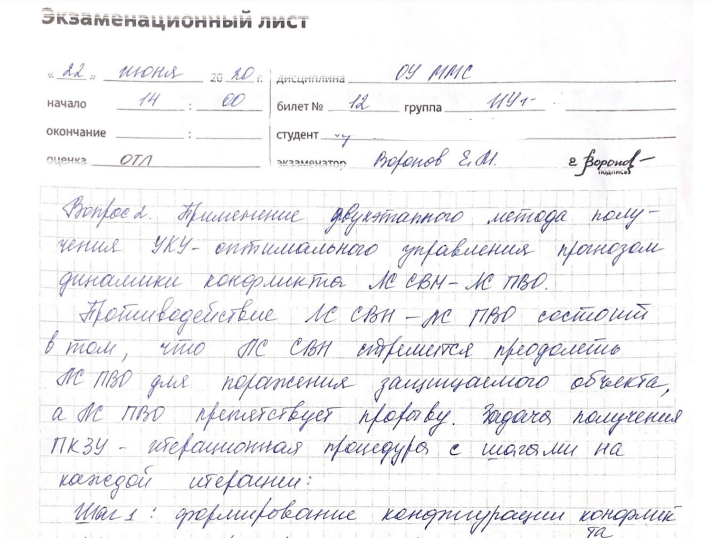 Экзаменационный лист
« 22 » июня 20 20 г. дисциплина ОУ ММС
начало 14 : 00 билет № 12 группа ИУ1-
окончание : студент
оценка отл экзаменатор Воронов Е.М. Воронов
подпись
Вопрос 2. Применение двухэтапного метода полу-
чения УКУ-оптимального управления прогнозом
динамики конфликта ЛС СВН - ЛС ПВО.
Противодействие ЛС СВН - ЛС ПВО состоит
в том, что ЛС СВН стремется преодолеть
ЛС ПВО для поражения защищаемого объекта,
а ЛС ПВО препятствует прорыву. Задача получения
ПКЗУ - итерационная процедура с шагами на
каждой итерации:
Шаг 1: формирование конфигурации конфлик
та